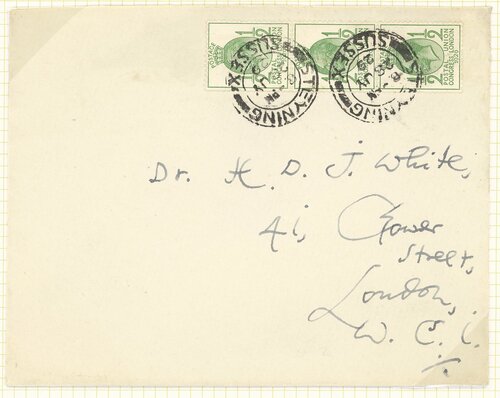 POSTAGE 1/2 POSTAL UNION CONGRESS LONDON 1929 1/2
1/2 POSTAL UNION CONGRESS LONDON 1929 1/2
1/2 POSTAL UNION CONGRESS LONDON 1929 1/2
STEYNING SUSSEX PM JY
STEYNING SUSSEX JY 29
Dr. H. D. J. White,
41, Gower
Street,
London,
W. C. 1.